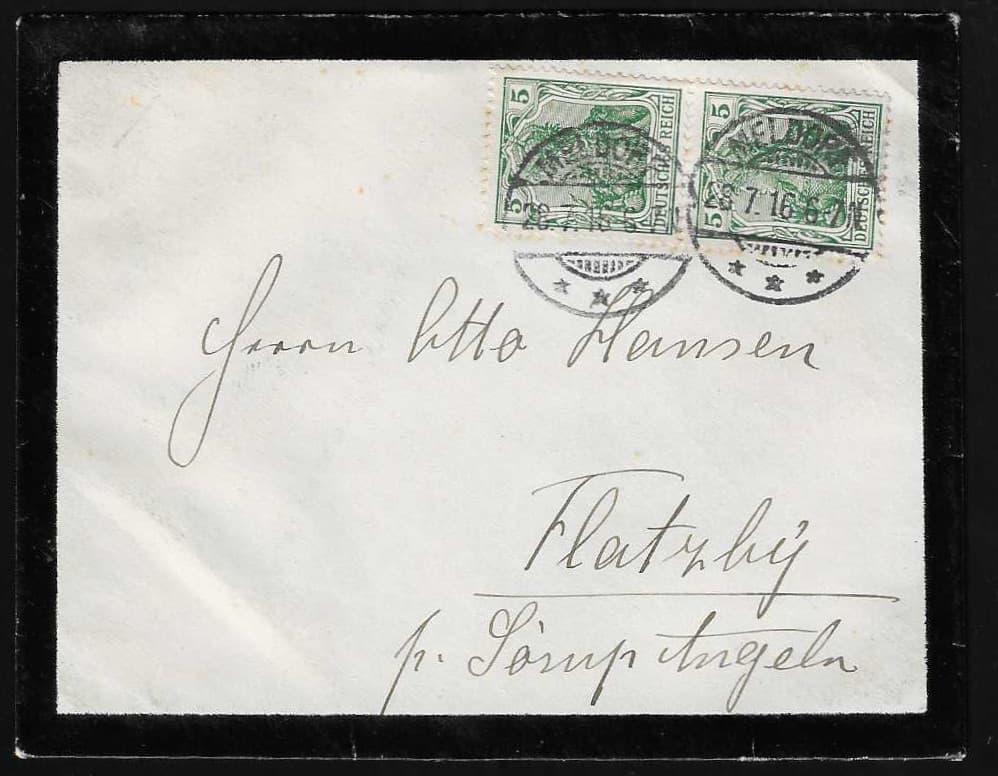 5 5 DEUTSCHES REICH
5 5 DEUTSCHES REICH
MELDORF
28.7.16.6
MELDORF
28.7.16.6-7N
Herrn Otto Hansen
Flatzbÿ
p. Sörup Angeln